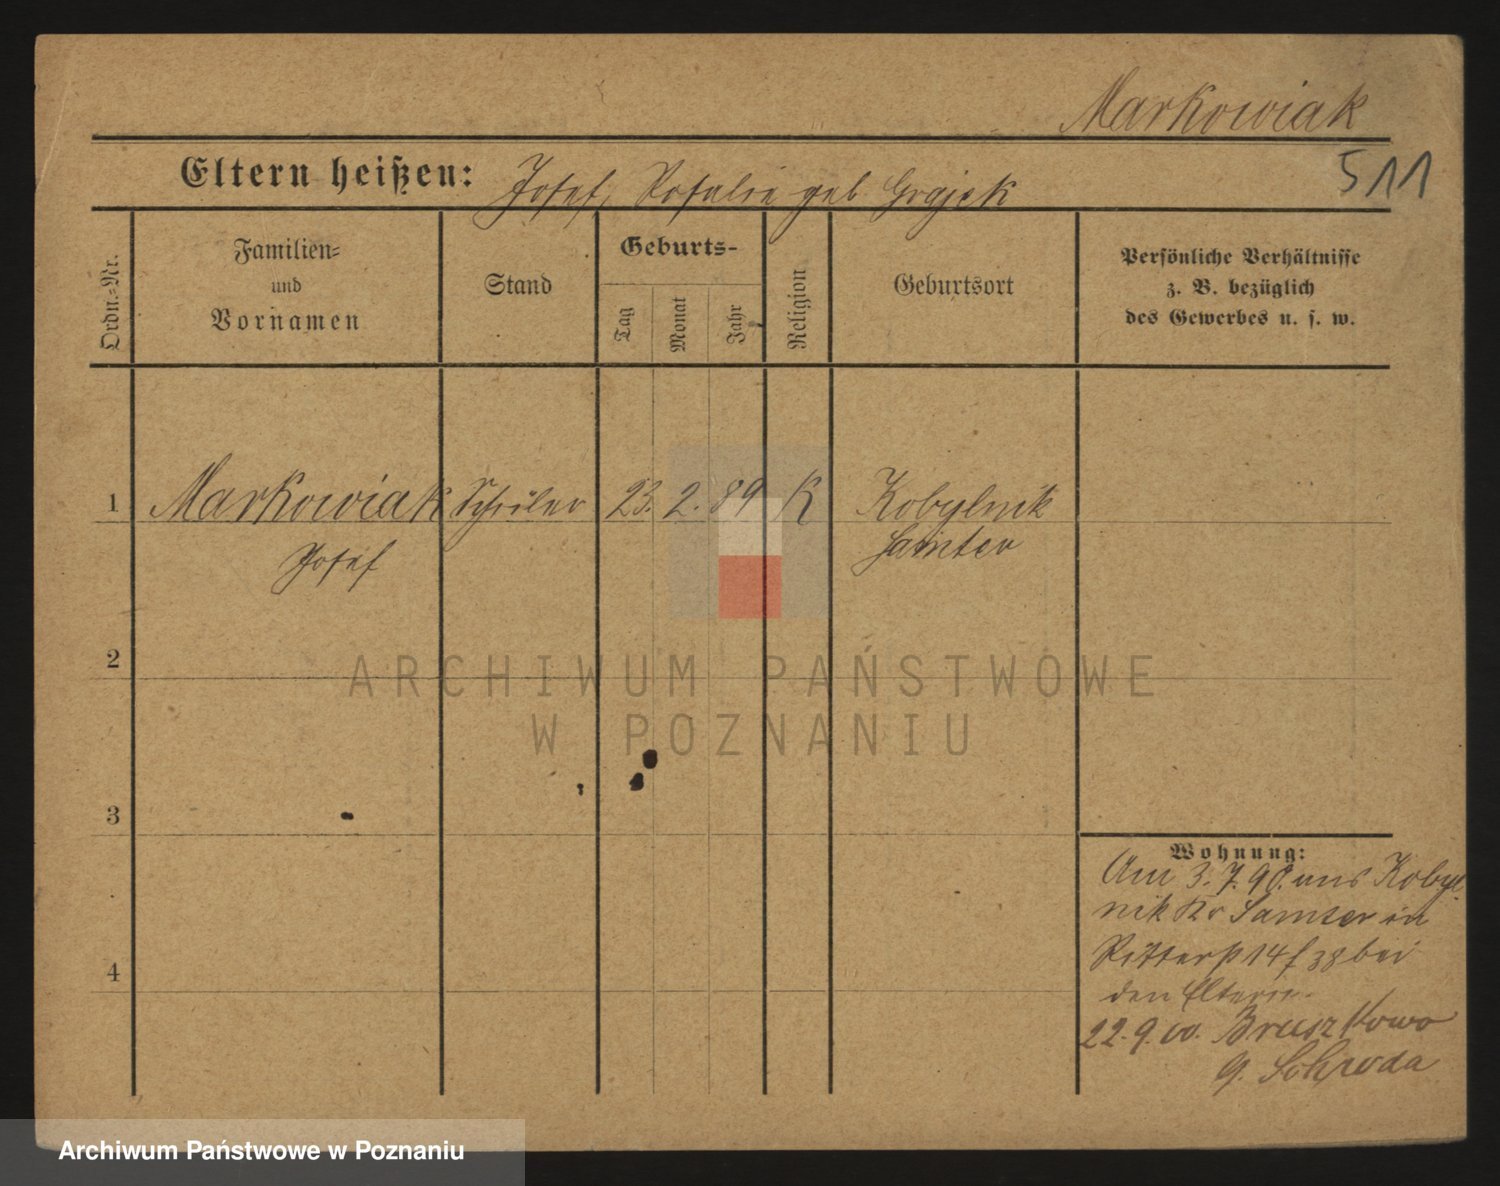 Markowiak
511
Eltern heißen: Josef, Rosalie geb. Grajek
Ordn.-Nr.
Familien-
und
Vornamen
Stand
Geburts-
Tag
Monat
Jahr
Religion
Geburtsort
Persönliche Verhältnisse
z. B. bezüglich
des Gewerbes u. s. w.
1 Markowiak Schüler 23. 2. 89 K Kobylnik
Josef Samter
2
ARCHIWUM PAŃSTWOWE
W POZNANIU
3
4
Wohnung:
Am 3. 7. 90. aus Kobyl
nik Kr Samter in
Ritterst 14 bei
den Eltern.
22. 9. 00. Bruszkowo
Schroda
Archiwum Państwowe w Poznaniu